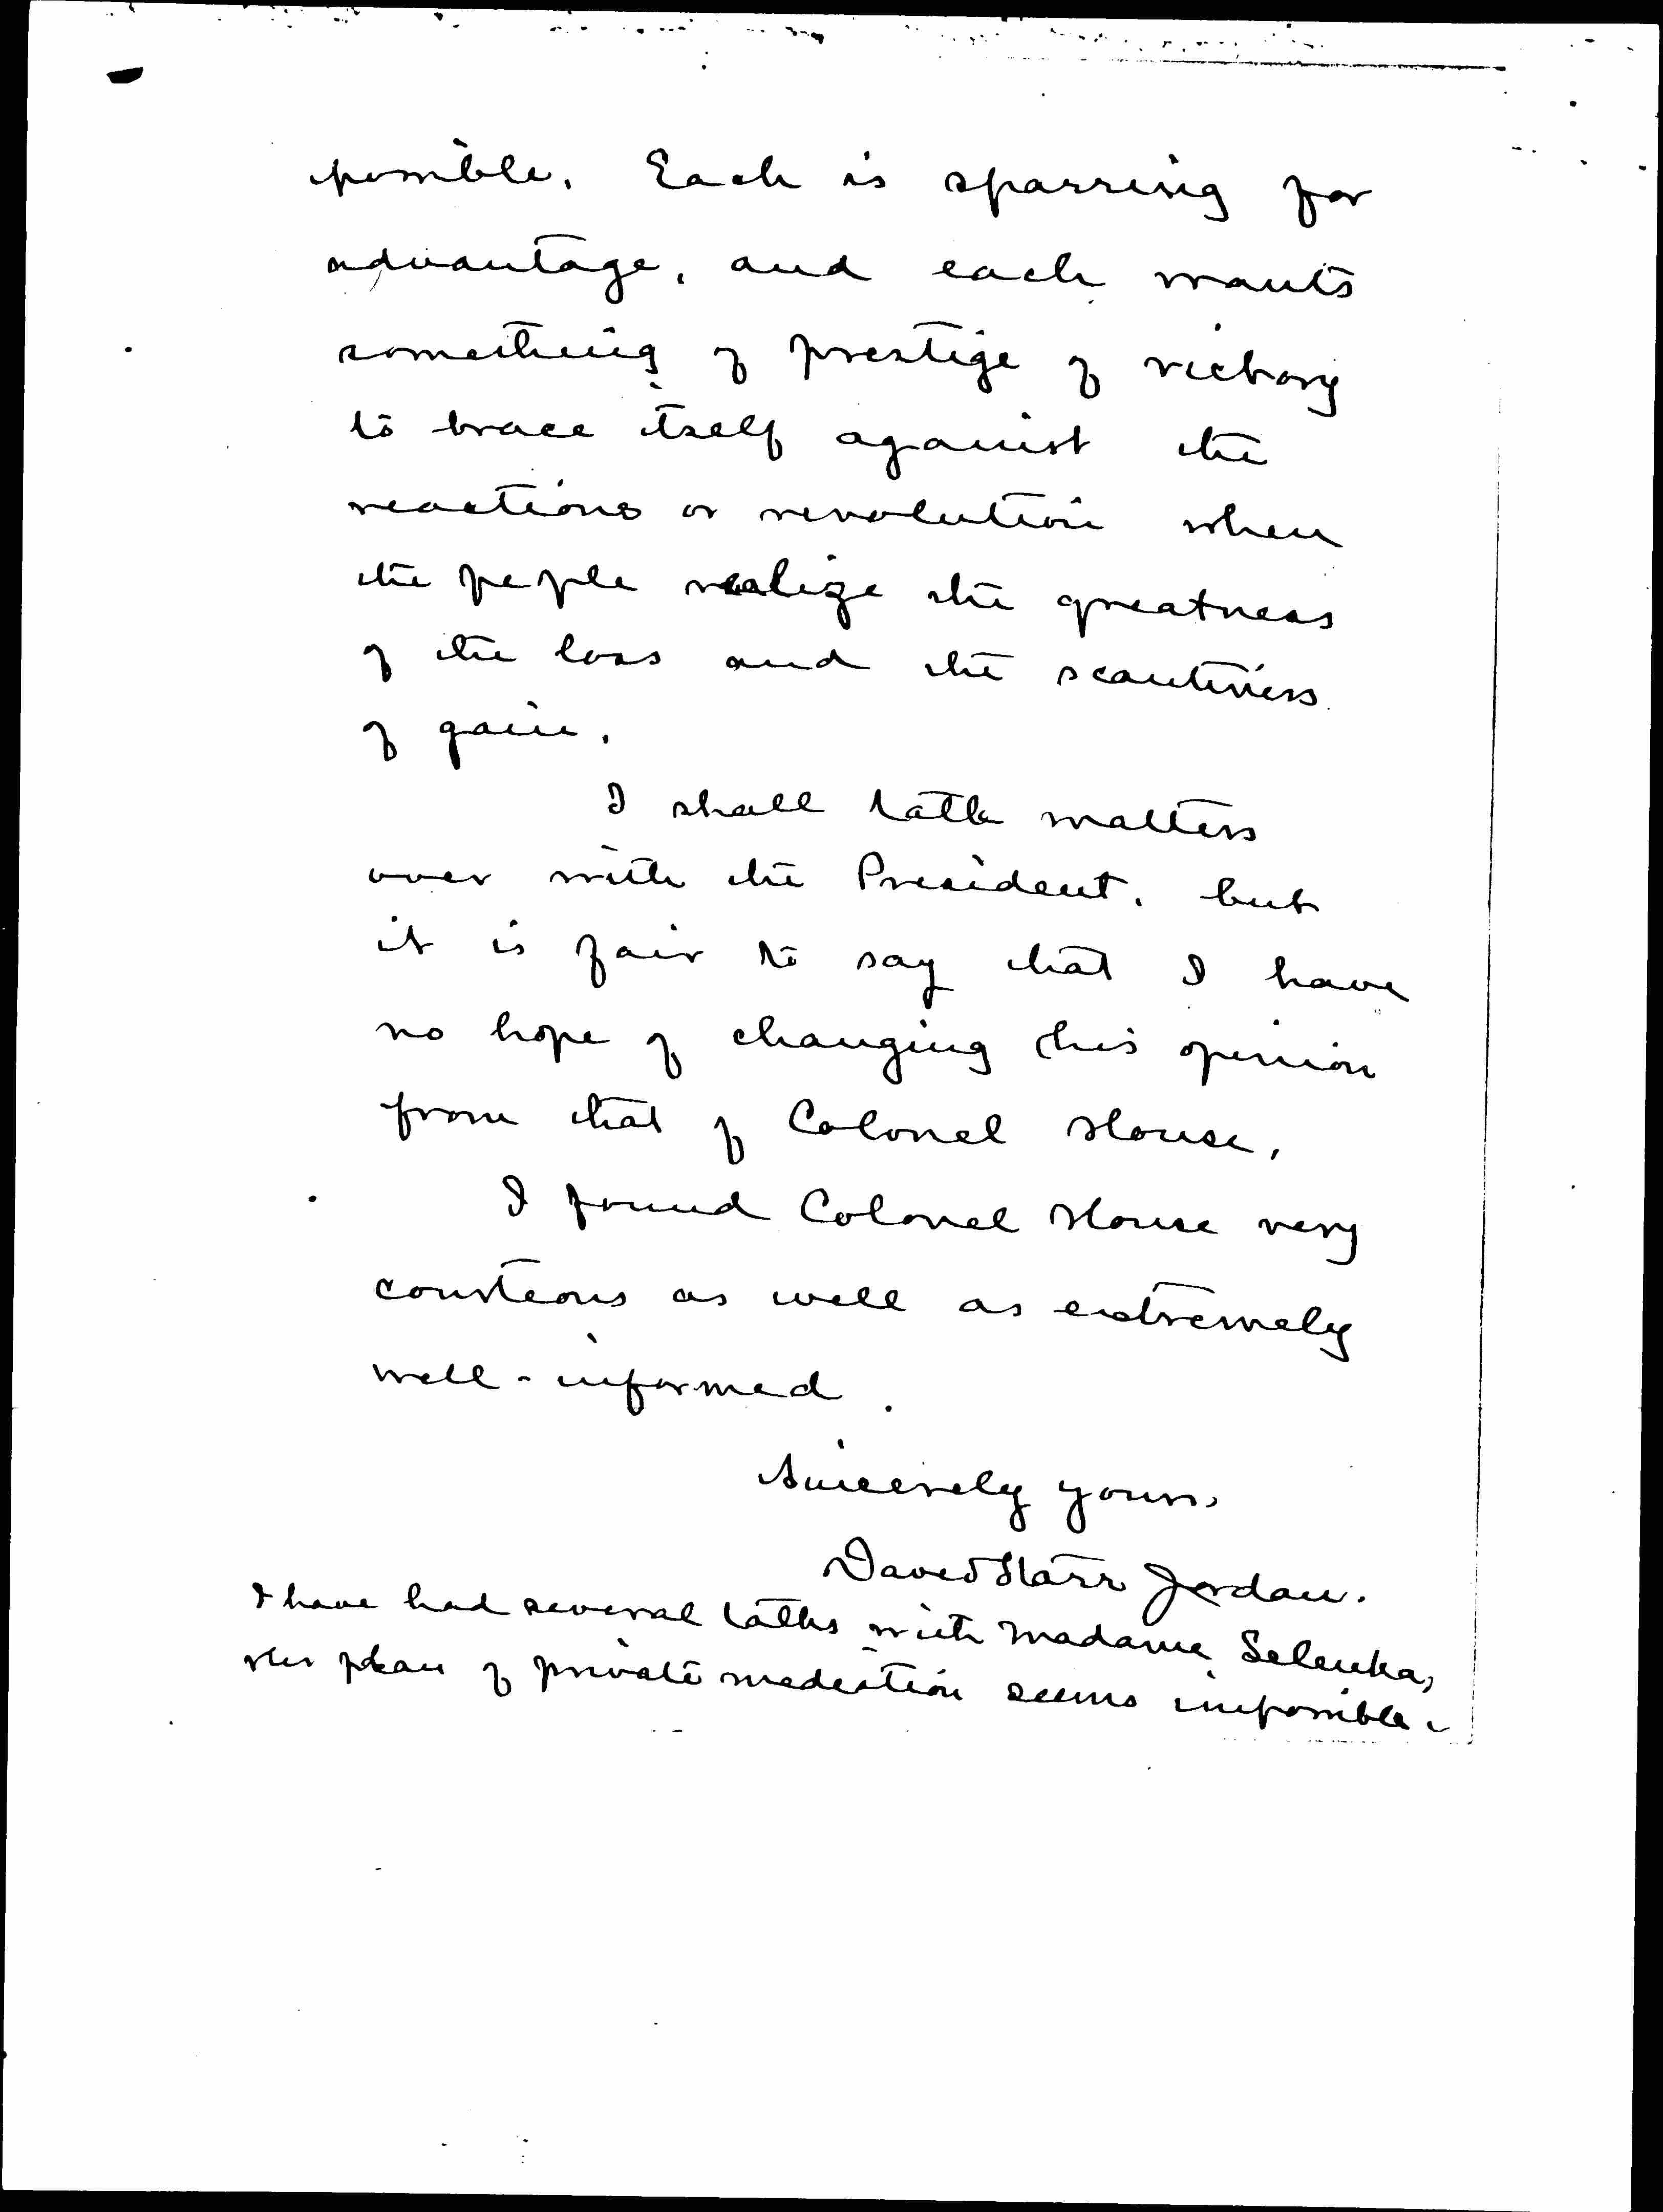 possible. Each is sparring for
advantage, and each wants
something of prestige of victory
to brace itself against the
reactions or revolution when
the people realize the greatness
of the loss and the scantiness
of gain.
I shall talk matters
over with the President, but
it is fair to say that I have
no hope of changing his opinion
from that of Colonel House.
I found Colonel House very
courteous as well as extremely
well-informed.
Sincerely yours,
David Starr Jordan.
I have had several talks with Madame Selenka,
Her plan of private mediation seems impossible.